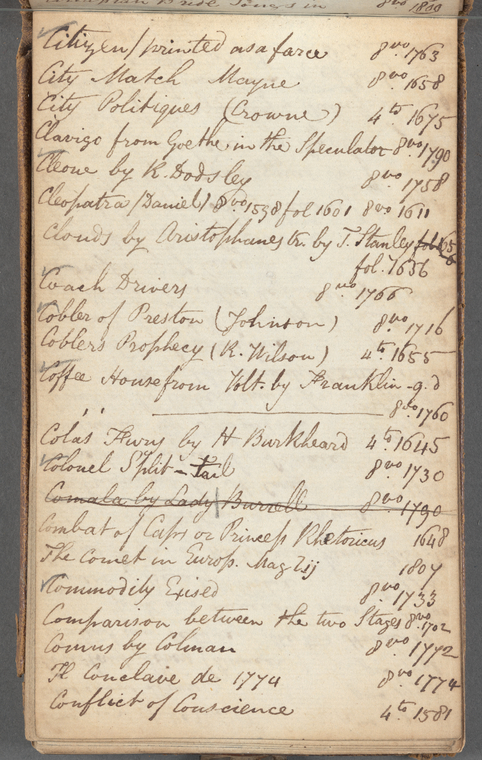 8vo 1800
Citizen/printed as a farce 8vo. 1763
City Match Mayne 8vo 1658
City Politiques (Crowne) 4to 1675
Clavigo from Goethe in the Speculator 8vo 1790
Cleone by R. Dodsley 8vo 1758
Cleopatra (Daniel) 8vo 1598 fol 1601 8vo 1611
Clouds by Aristophanes tr. by T. Stanley fol 165
fol. 1656
Coach Drivers 8vo 1766
Cobler of Preston (Johnson) 8vo 1716
Coblers Prophecy (R. Wilson) 4to. 1655
Coffee House from Volt. by Franklin - g.d
" 8vo 1760
Colas Fury by H Burkheard 4to 1645
Colonel Split-Tail 8vo 1730
Comala by Lady Burrell 8vo 1790
Combat of Caps or Princeps Rhetoricus 1648
The Comet in Europ. Mag. 1807
Commodity Exised 8vo. 1733
Comparison between the two Stages 8vo. 1702
Comus by Colman 8vo 1772
Il Conclave de 1774 8vo 1774
Conflict of Conscience 4to 1581